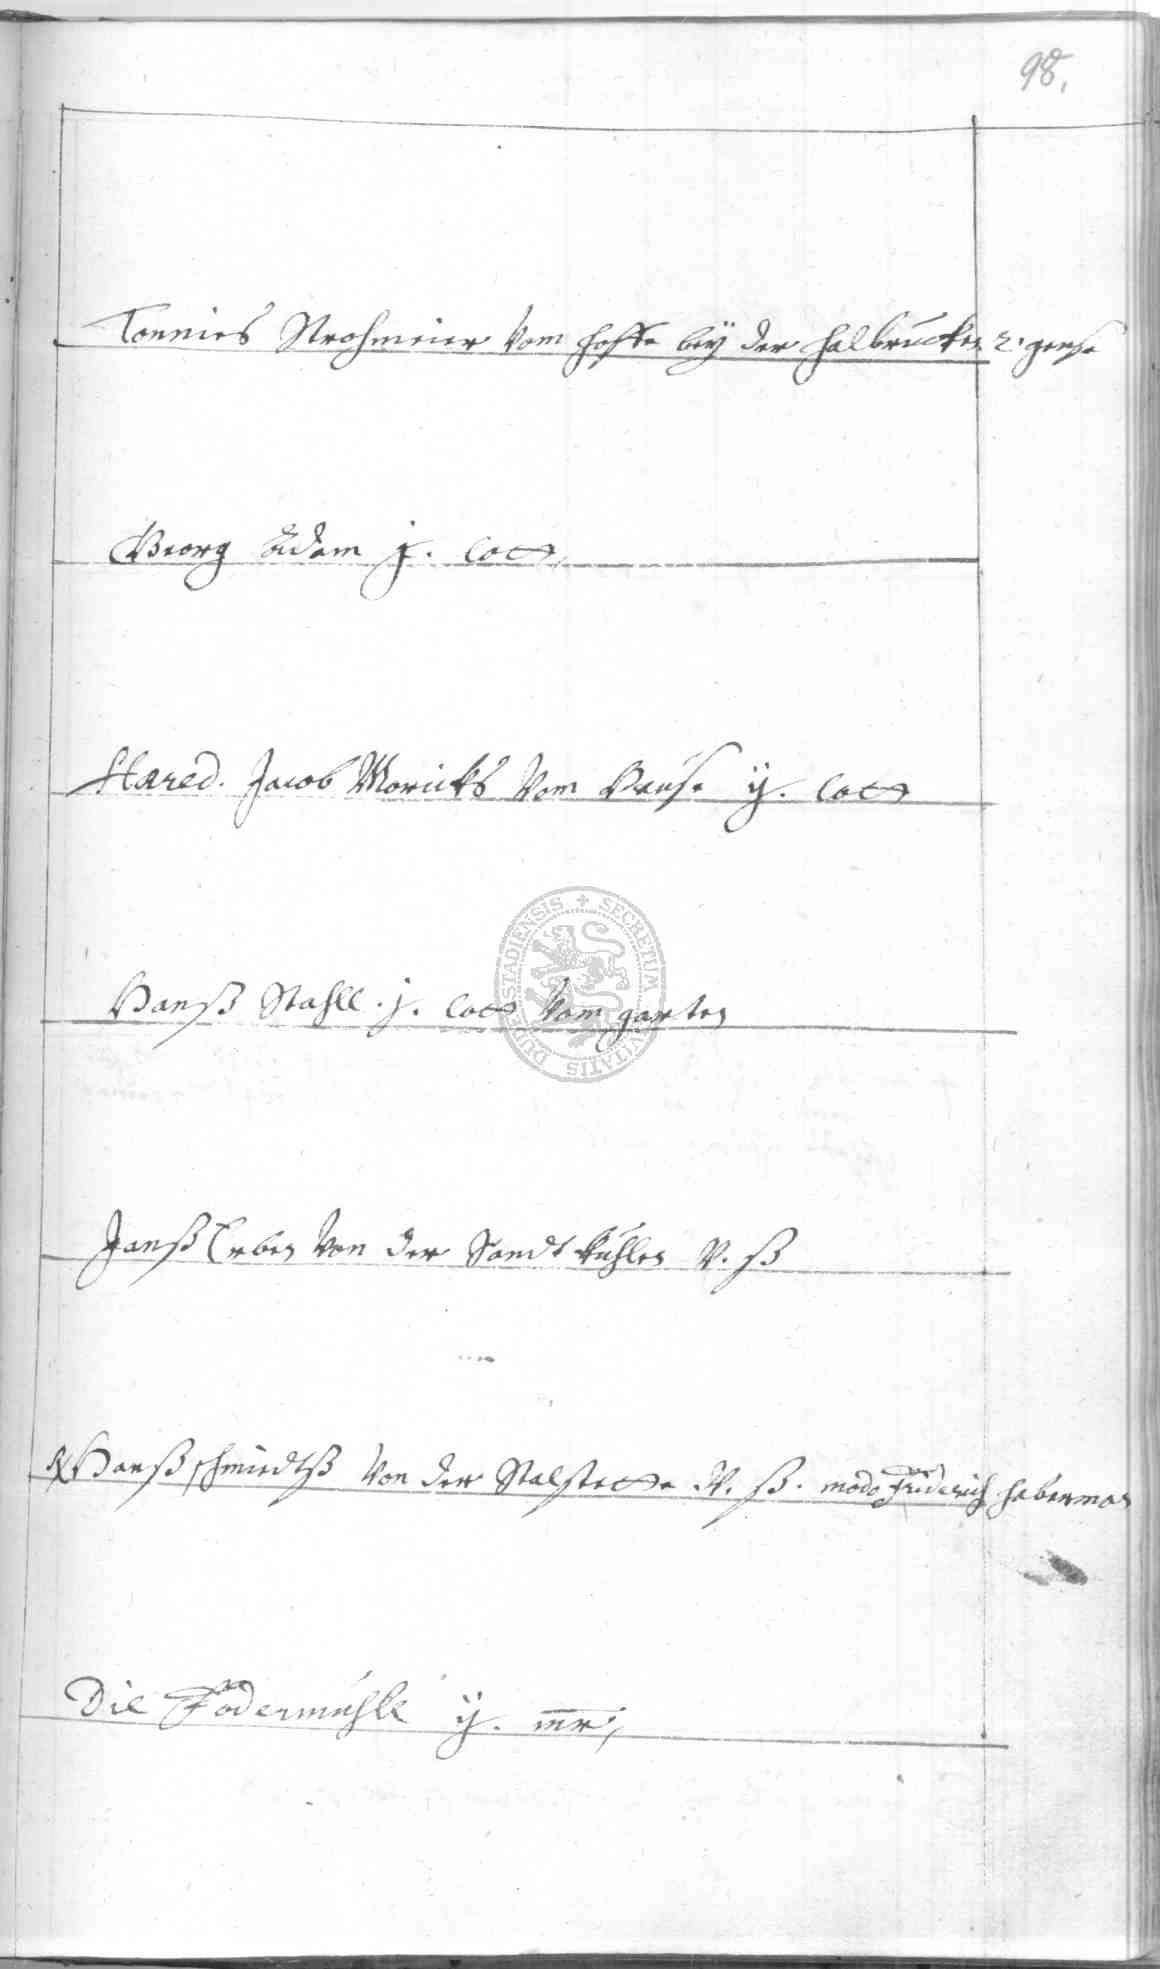 98.
Tonnies Strohmeier vom hoffe beÿ der halbrucken 2. gense
Georg Adam j. lott
Hæred. Jacob Moricks vom Hause ij. lott
Hanß Stahll. j. lott vom garten
Hanß Erben von der Sandtkuhlen v. ß
Hanß schmiedtß von der Stalstette v. ß. modo Friderich haberman
Die Fodermühle ij. mr,
SECRETUM CIVITATIS DUDERSTADIENSIS